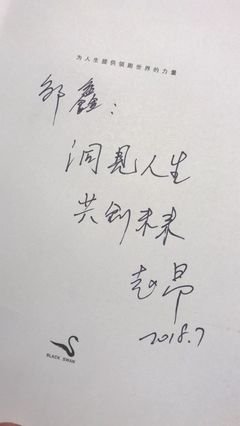 为人生提供领跑世界的力量
邹鑫：
洞见人生
共创未来
赵昂
2018.7
BLACK SWAN